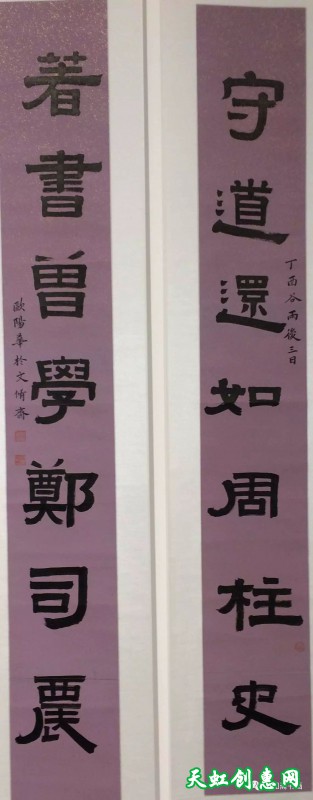 守道還如周柱史
丁酉谷雨後三日
著書曾學鄭司農
歐陽華於文術齋
天虹创惠网